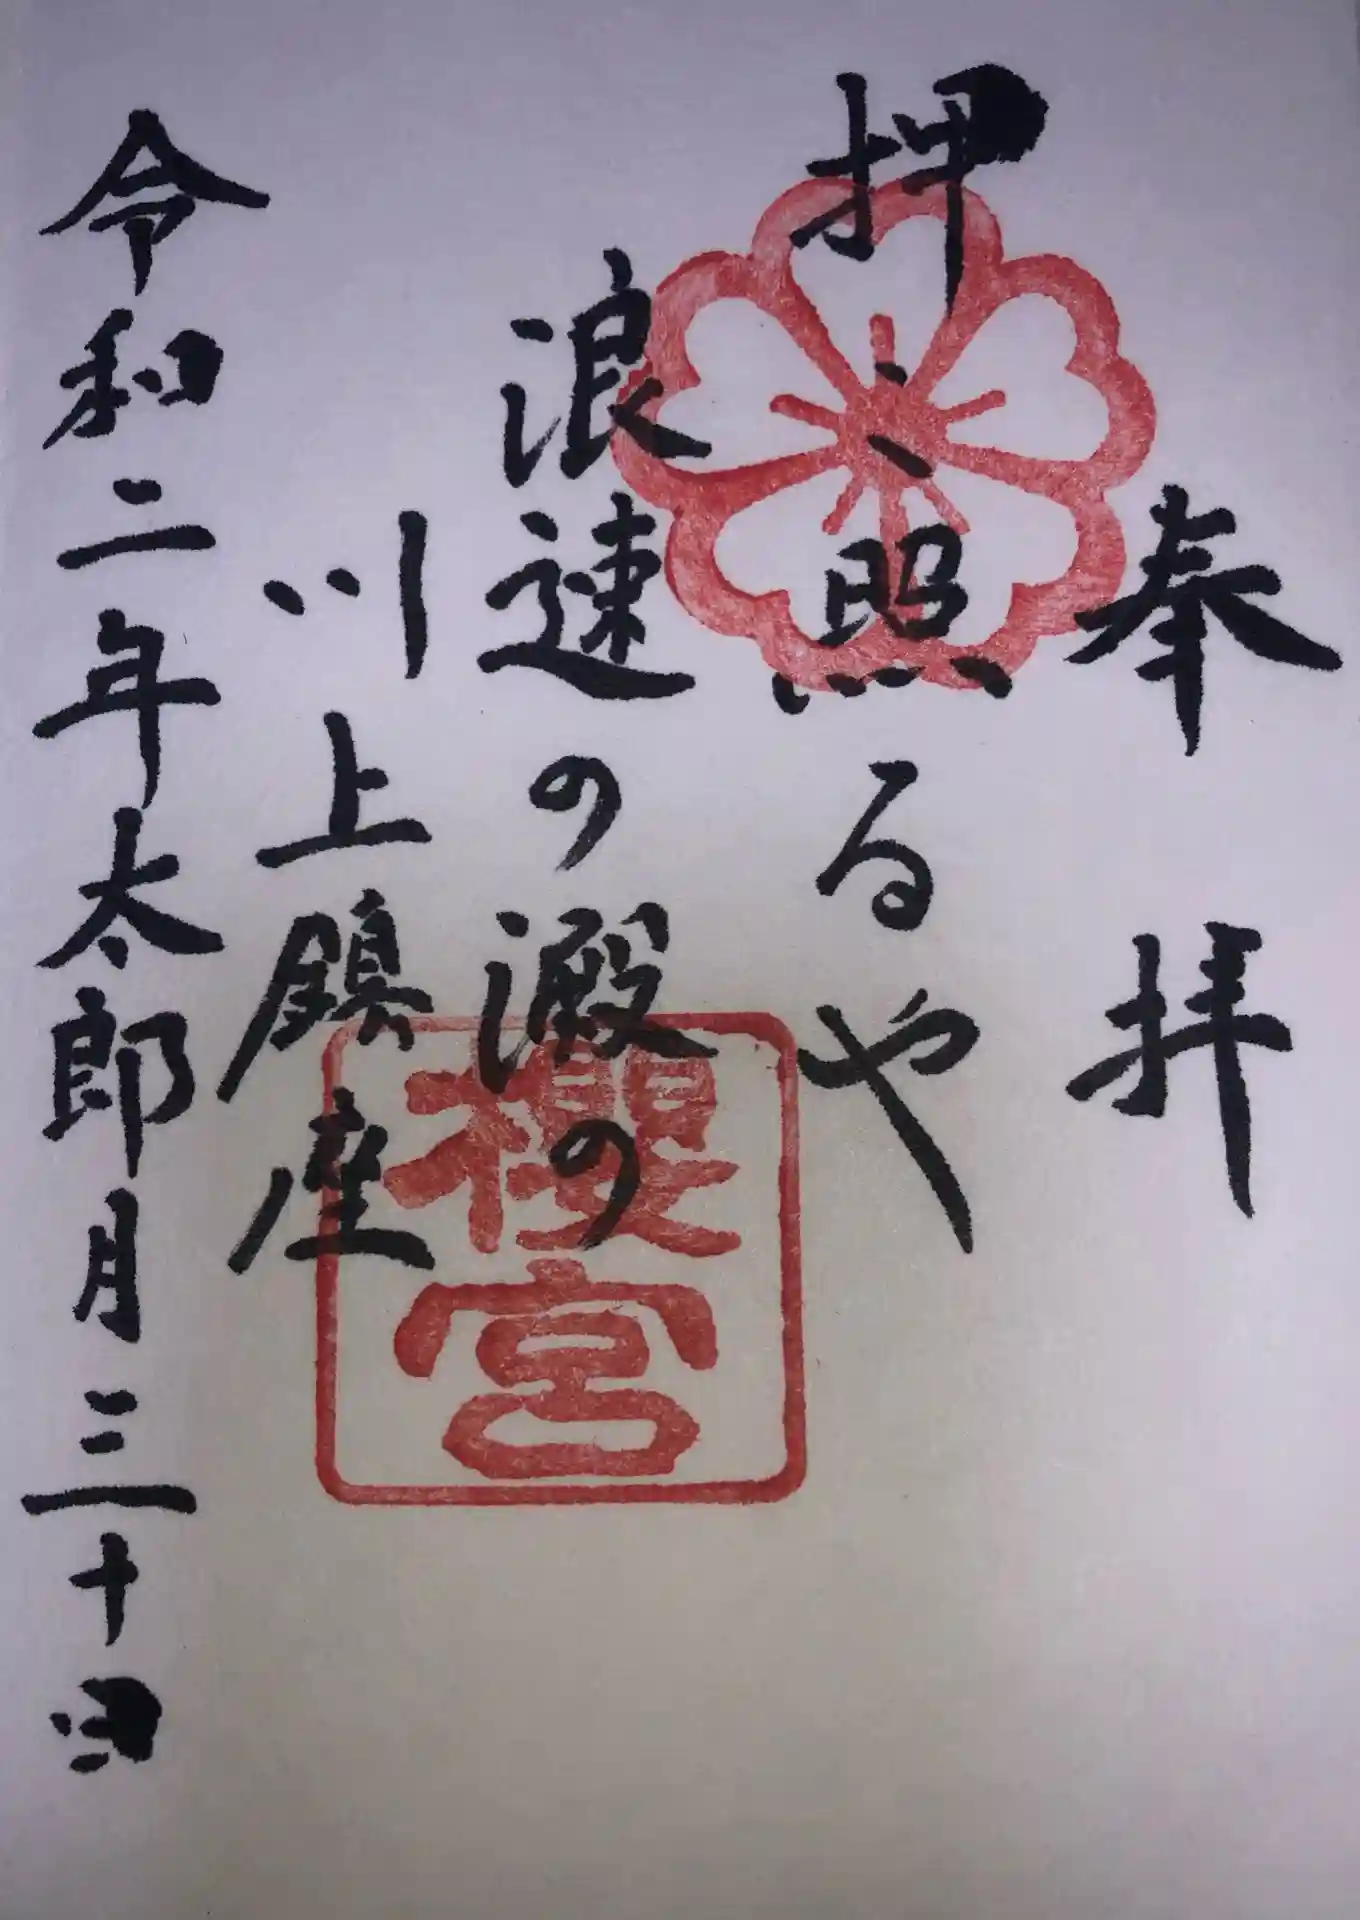 奉拝
押〻照るや
浪速の澱の
川上鎮座
令和二年太郎月三十日
櫻宮